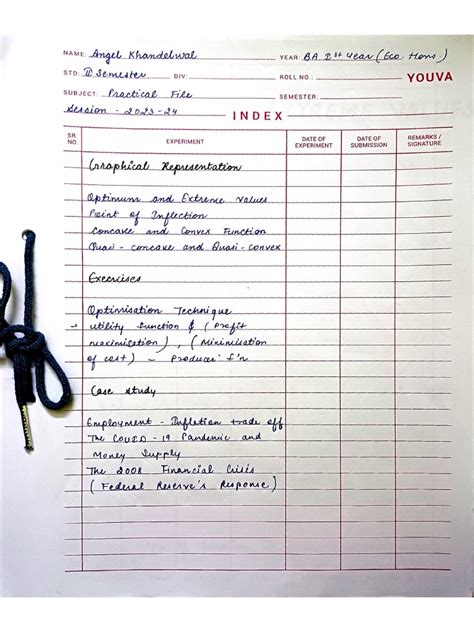 NAME: Angel Khandelwal YEAR: BA Ist Year (Eco. Hons.)
STD: II Semester DIV: ROLL NO.: YOUVA
SUBJECT: Practical File SEMESTER:
Session - 2023-24
INDEX
SR. NO. EXPERIMENT DATE OF EXPERIMENT DATE OF SUBMISSION REMARKS / SIGNATURE
Graphical Representation
Optimum and Extreme values
Point of Inflection
Concave and Convex Function
Quasi - concave and Quasi - convex
Exercises
Optimisation Technique
- Utility function & (Profit
maximisation), (Minimisation
of cost) - Producer f'n
Case study
Employment - Inflation trade off
The COVID - 19 Pandemic and
Money Supply
The 2008 Financial Crisis
(Federal Reserve's Response)